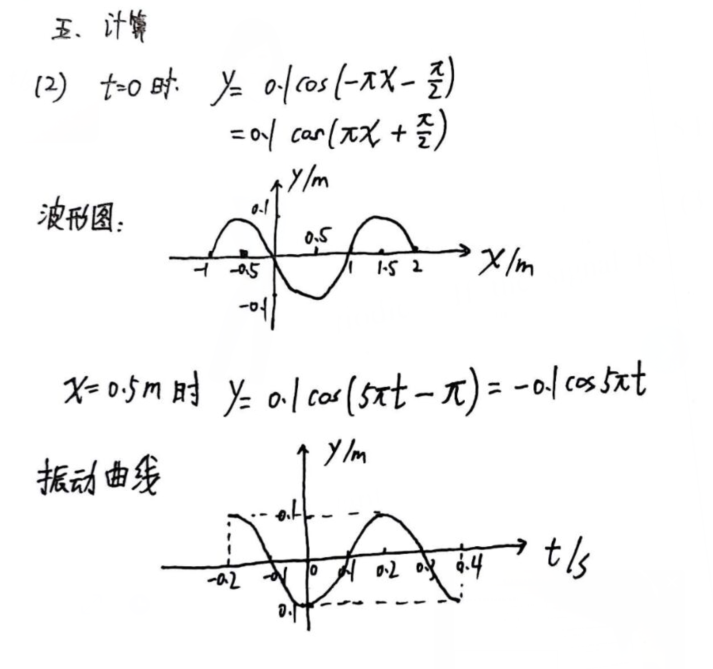 五、计算
(2) t=0时. y= 0.1cos(-πx-π/2)
=0.1 cos(πx+π/2)
波形图:
y/m
0.1
0.5
-1 -0.5 1 1.5 2 x/m
-0.1
x=0.5m时 y= 0.1cos(5πt-π)=-0.1cos5πt
振动曲线
y/m
0.1
-0.2 -0.1 0 0.1 0.2 0.3 0.4 t/s
0.1